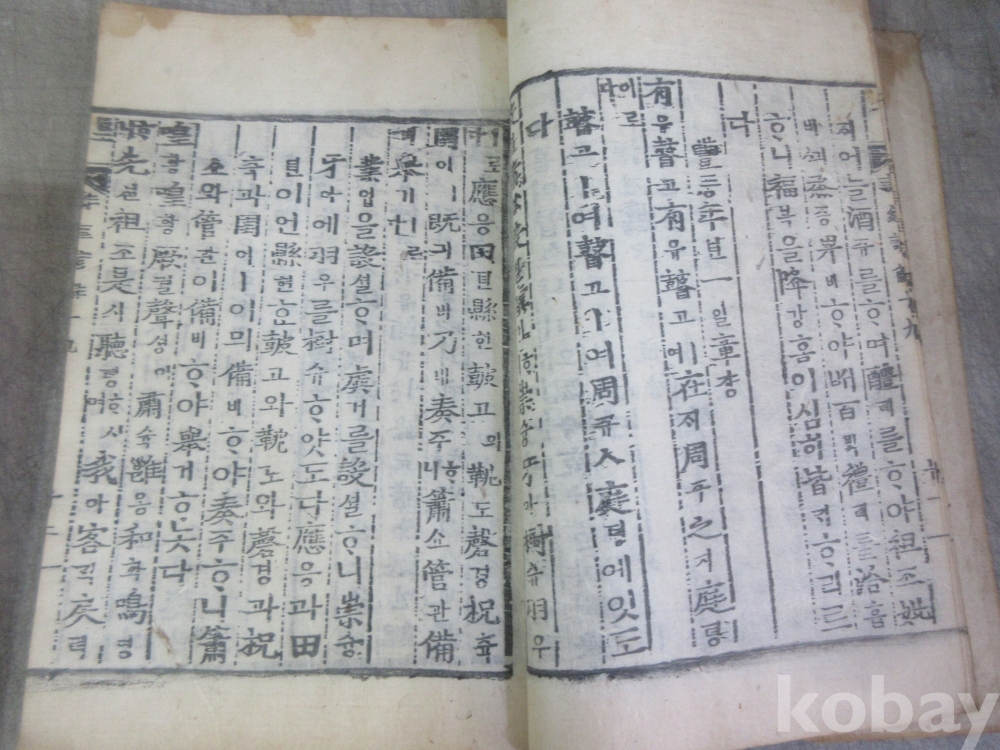 지어늘酒쥬를ᄒᆞ며醴례를ᄒᆞ야祖조妣
바ᄭᅴ烝증畀비ᄒᆞ야ᄡᅥ百ᄇᆡᆨ禮례를洽흡
ᄒᆞ니福복을降강홈이심히皆ᄀᆡᄒᆞ리로
다
豐풍年년一일章쟝
有유瞽고有유瞽고ㅣ여在ᄌᆡ周쥬之지庭뎡
이로다
瞽고ㅣ여瞽고ㅣ여周쥬ㅅ庭뎡에잇도
다
崇슝牙아樹슈羽우
ㅣ로다應응田뎐縣현鼓고와鞉도磬경柷츅
圉어ㅣ既긔備비乃내奏주ᄒᆞ니簫쇼管관備
비擧거ㅣ로다
業업을設셜ᄒᆞ며虡거를設셜ᄒᆞ니崇슝
牙아에羽우를樹슈ᄒᆞ얏도다應응과田
뎐이언縣현ᄒᆞᆫ鼓고와鞉도와磬경과柷
츅과圉어ㅣ이믜備비ᄒᆞ야奏주ᄒᆞ니簫
쇼와管관이備비ᄒᆞ야擧거ᄒᆞ놋다
喤황喤황厥궐聲셩이肅슉雝옹和화鳴명
先션祖조是시聽텽ᄒᆞ시며我아客ᄀᆡᆨ戾려
kobay